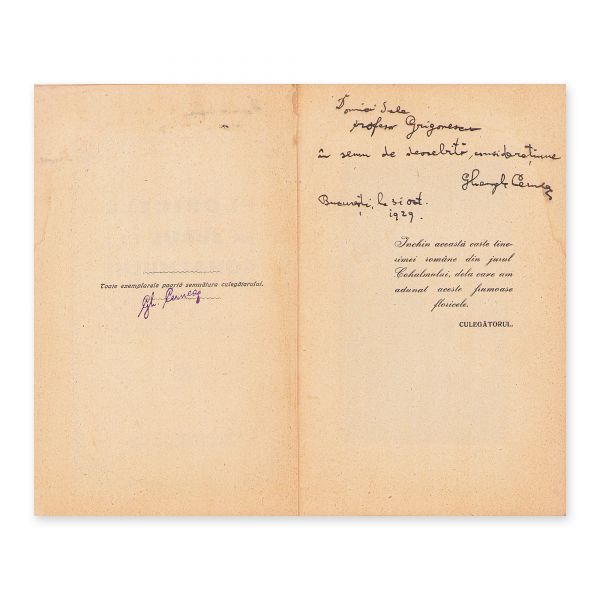 Toate exemplarele poartă semnătura culegătorului.
Gh. Cernea
Domniei Sale
profesor Grigorescu
în semn de deosebită considerațiune
Gheorghe Cernea
București, la 31 oct.
1929.
Închin această carte tine-
rimei române din jurul
Cohalmului, dela care am
adunat aceste frumoase
floricele.
CULEGĂTORUL.